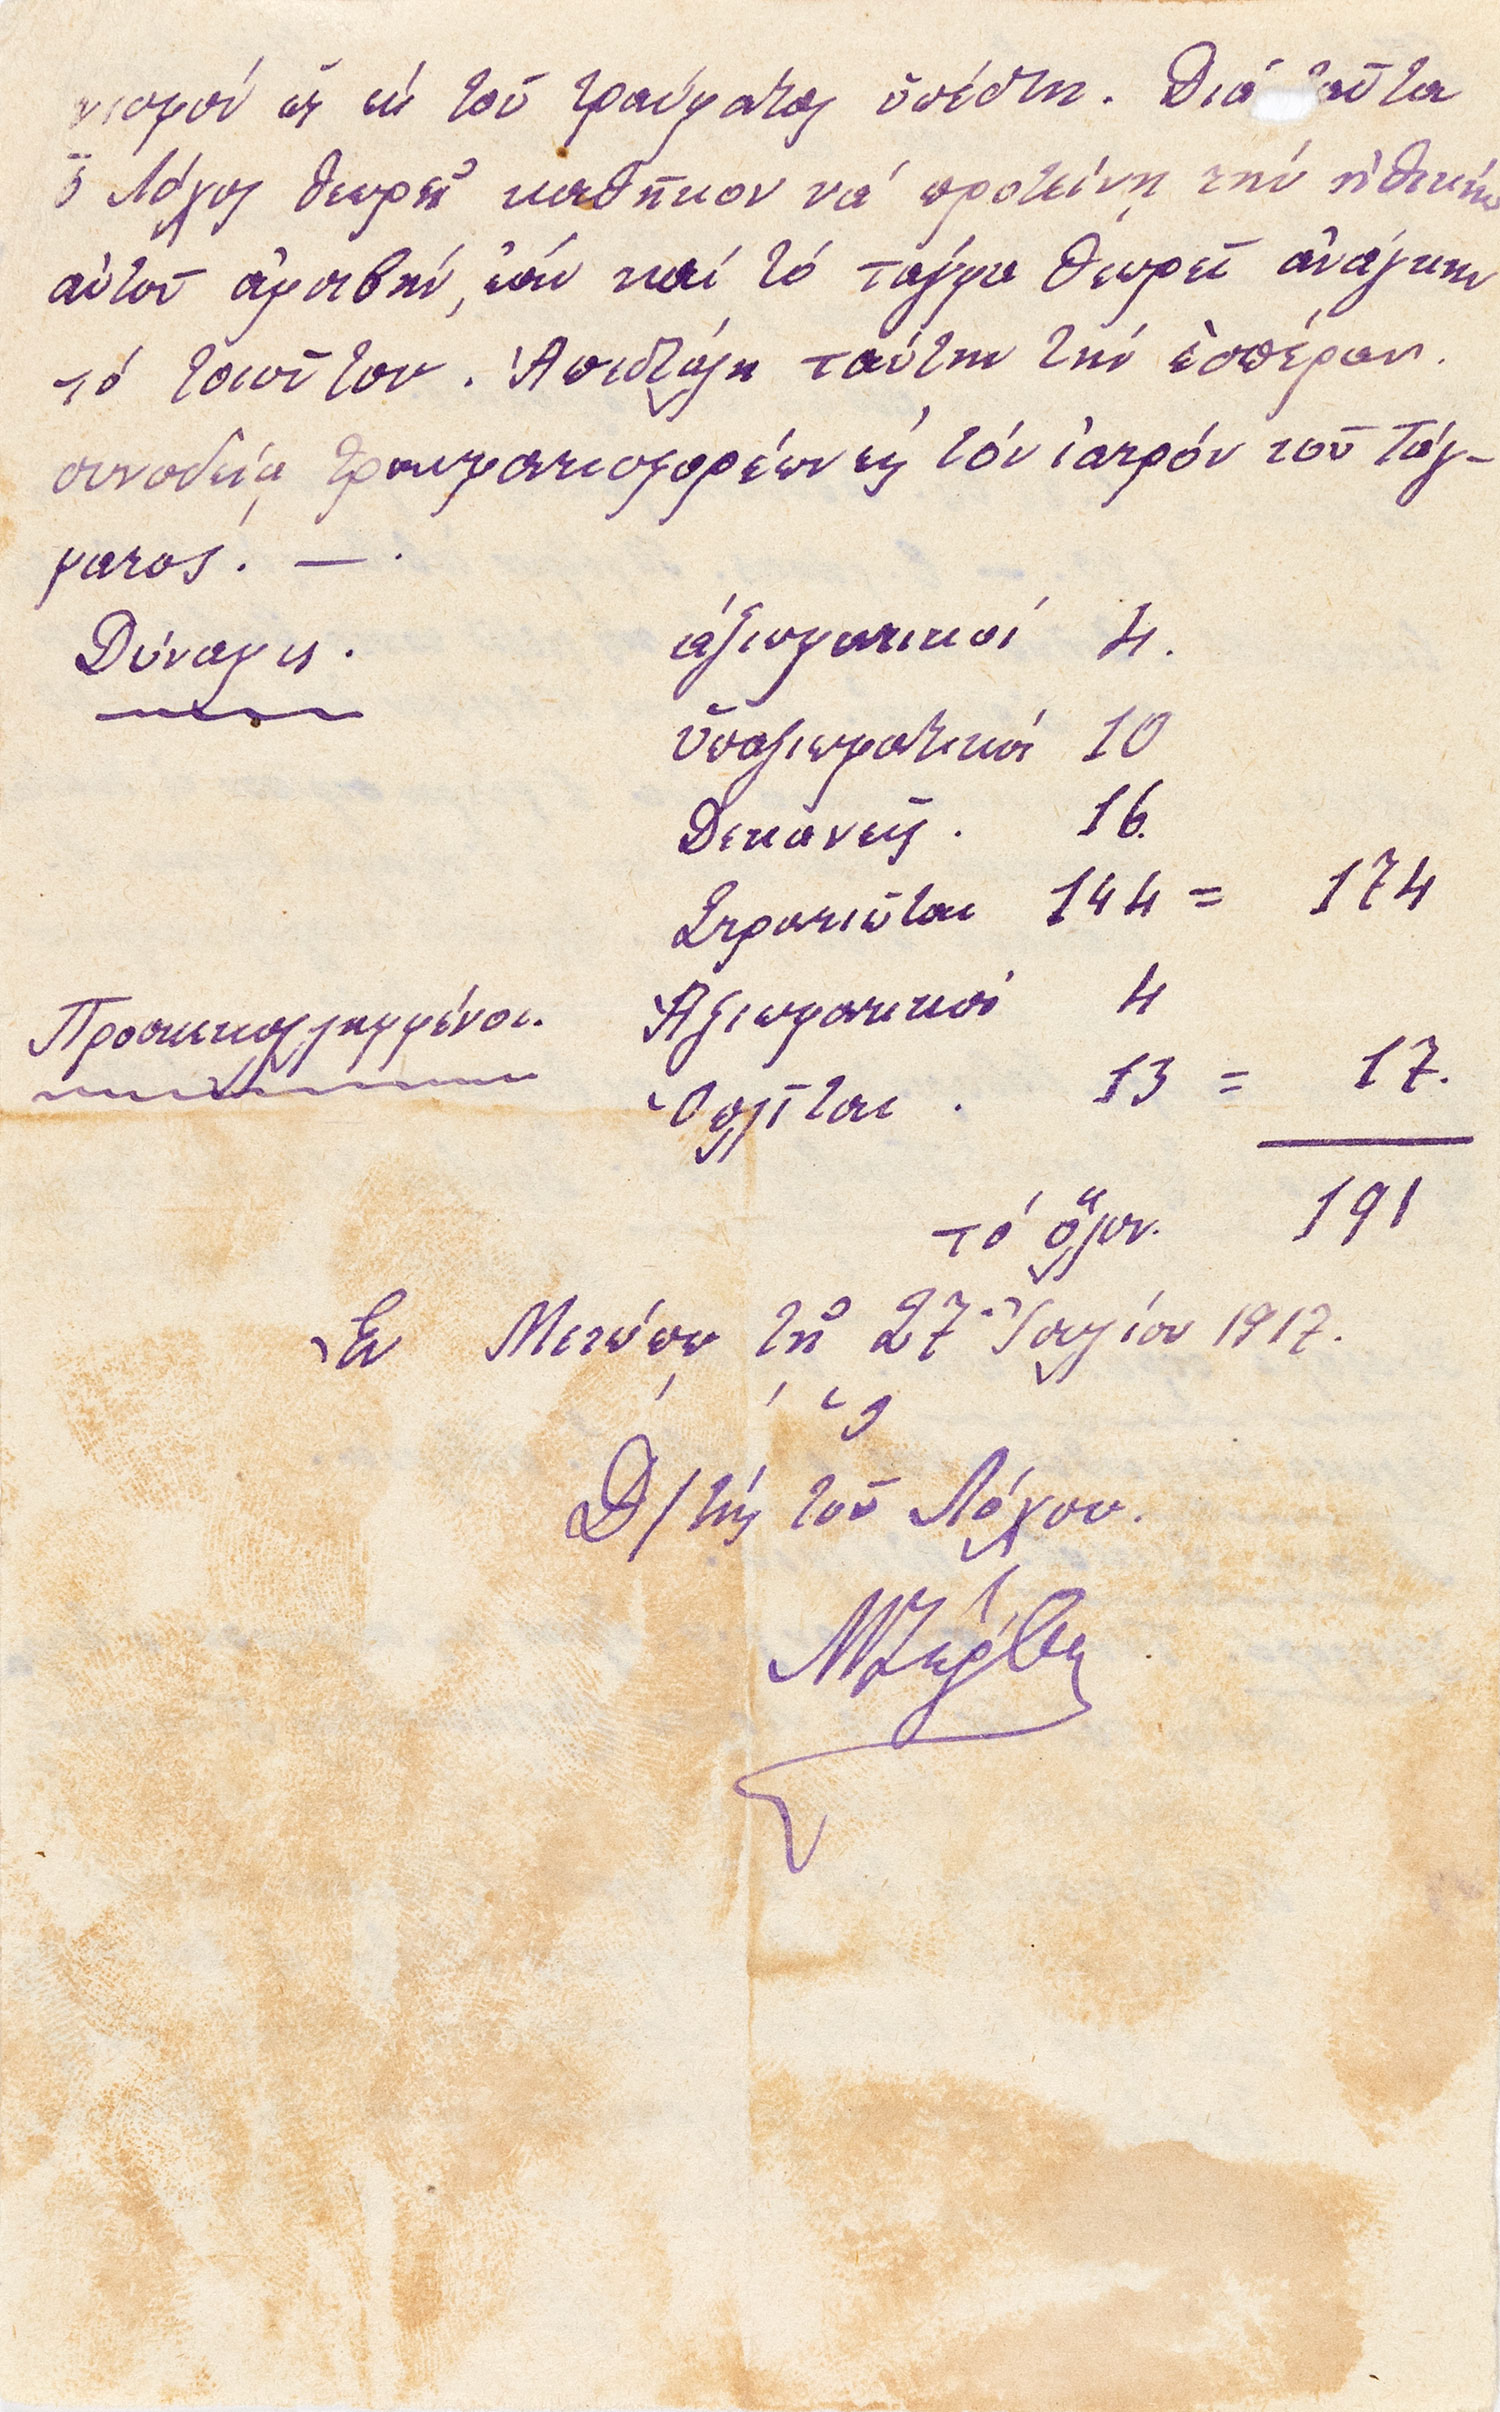 νισμοί ὡς ἐκ τοῦ τραύματος ὑπέστη. Διὰ ταῦτα
ὁ Λόχος θεωρεῖ καθῆκον νά προτείνῃ τήν ἠθικήν
αὐτοῦ ἀμοιβήν, ἐάν καί τό τάγμα θεωρεῖ ἀνάγκην
τό τοιοῦτον. Ἀπεστάλη ταύτην τήν ἑσπέραν
συνοδείᾳ τραυματιοφορέων εἰς τόν ἰατρόν τοῦ Τάγ-
ματος. — .
Δύναμις. ἀξιωματικοί 4.
ὑπαξιωματικοί 10
Δεκανεῖς. 16.
Στρατιῶται 144 = 174
Προσκεκολλημμένοι. Ἀξιωματικοί 4
Ὁπλῖται . 13 = 17.
τό ὅλον. 191
Ἐν Μετώπῳ τῇ 27 Ἰουλίου 1917.
Ὁ
Δ/τής τοῦ Λόχου.
ΝΖέρβας